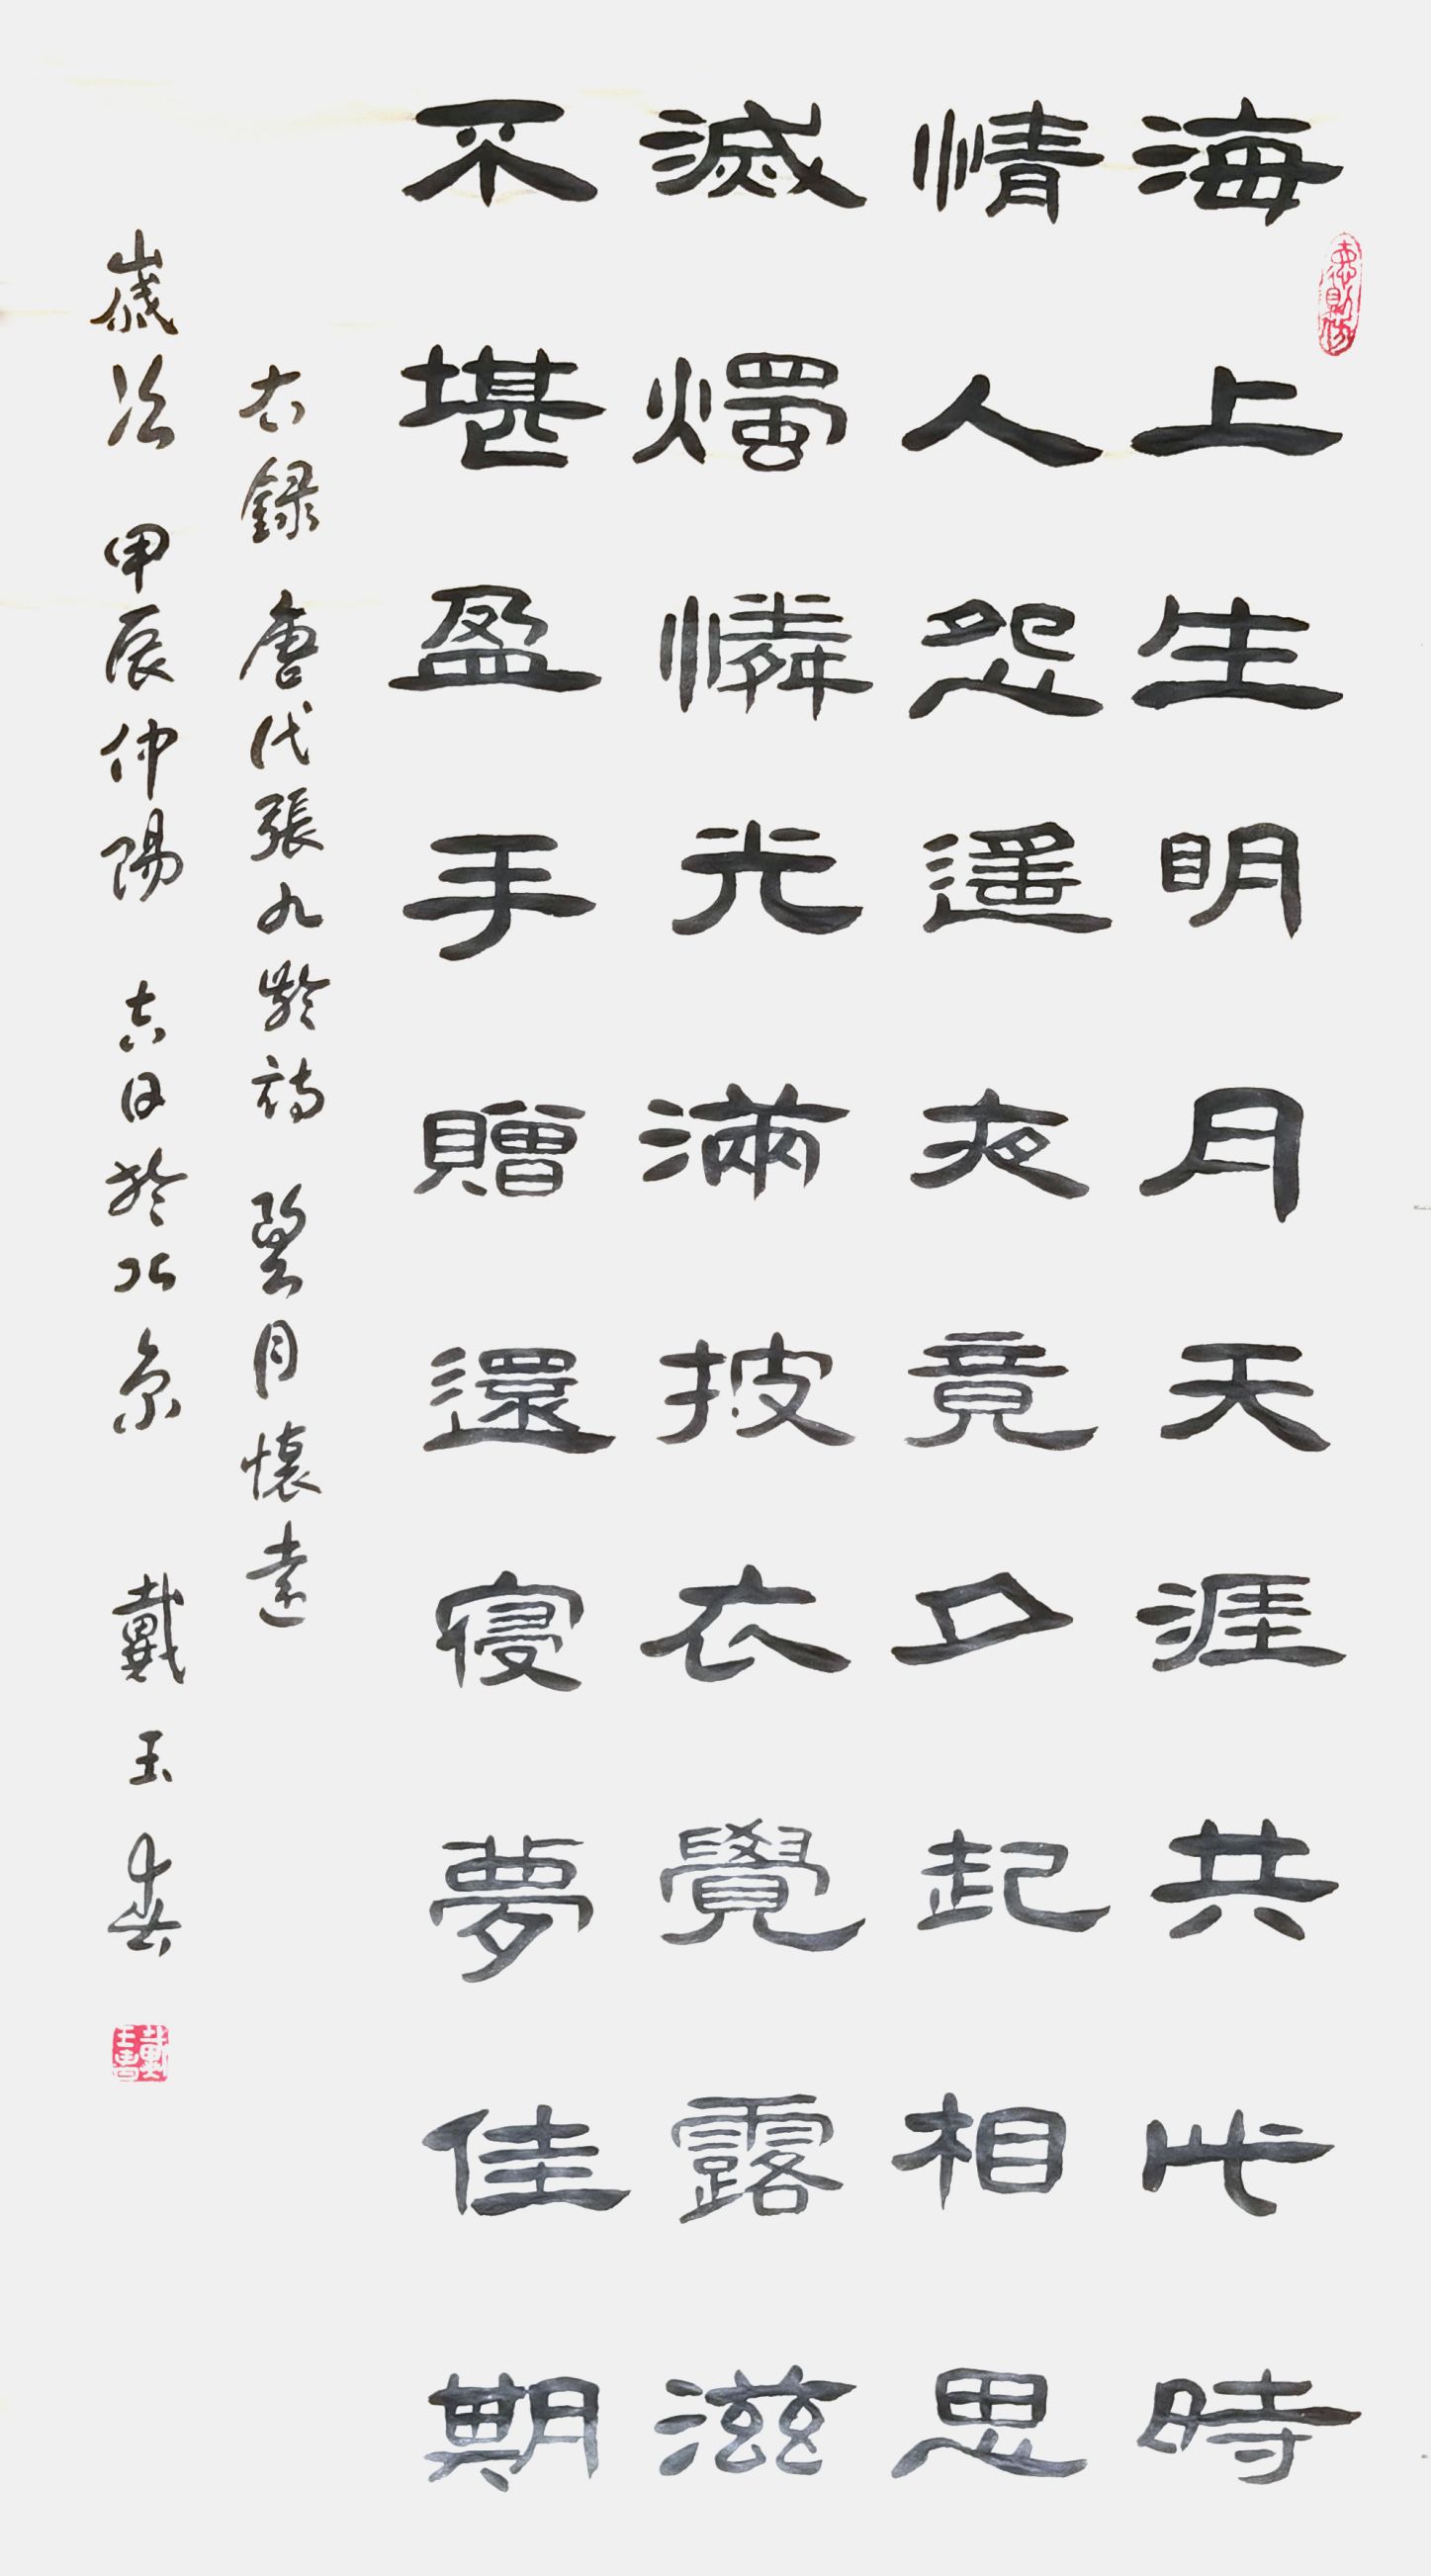 海上生明月天涯共此時
情人怨遙夜竟夕起相思
滅燭憐光滿披衣覺露滋
不堪盈手贈還寢夢佳期
右録 唐代張九齡詩 望月懷遠
歲次 甲辰仲陽 吉日於北京 戴玉